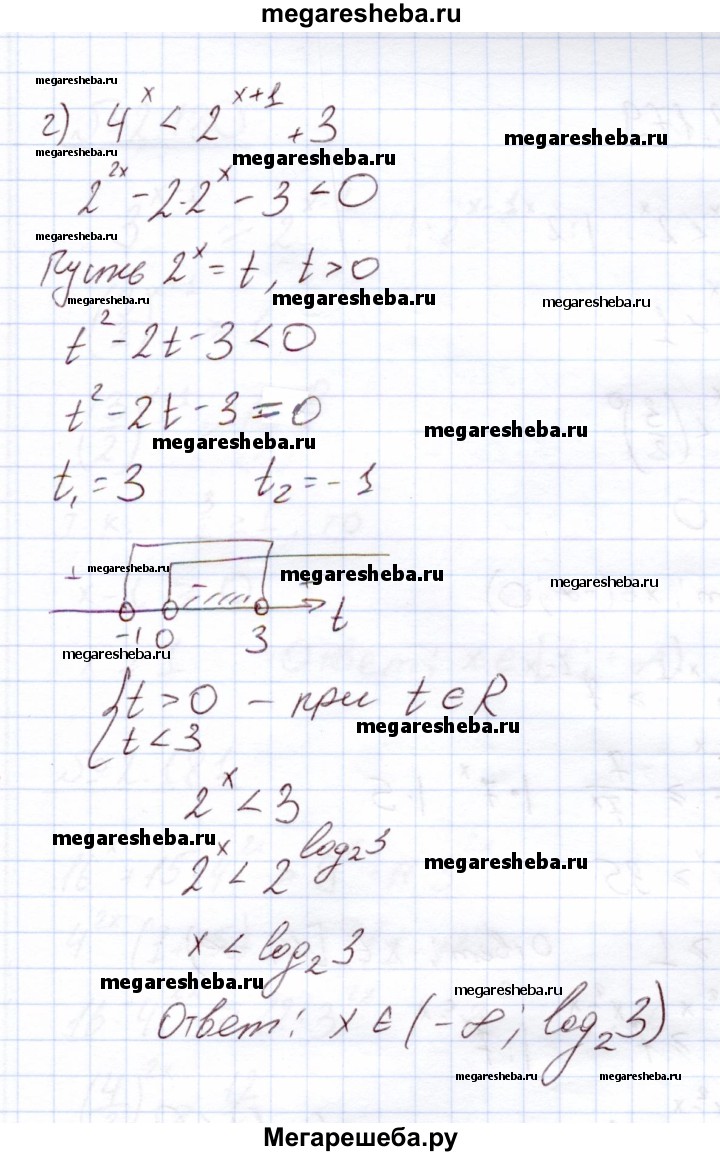 megaresheba.ru
megaresheba.ru
г) 4^x < 2^(x+1) + 3
megaresheba.ru
megaresheba.ru
megaresheba.ru
2^(2x) - 2·2^x - 3 < 0
megaresheba.ru
Пусть 2^x = t, t > 0
megaresheba.ru
megaresheba.ru
megaresheba.ru
t^2 - 2t - 3 < 0
t^2 - 2t - 3 = 0
megaresheba.ru
megaresheba.ru
t₁ = 3 t₂ = -1
megaresheba.ru
megaresheba.ru
megaresheba.ru
+ - +
-1 0 3 t
megaresheba.ru
{ t > 0 - при t ∈ R
megaresheba.ru
t < 3
2^x < 3
megaresheba.ru
2^x < 2^(log₂3)
megaresheba.ru
x < log₂3
megaresheba.ru
megaresheba.ru
Ответ: x ∈ (-∞; log₂3)
megaresheba.ru
megaresheba.ru
Мегарешеба.ру